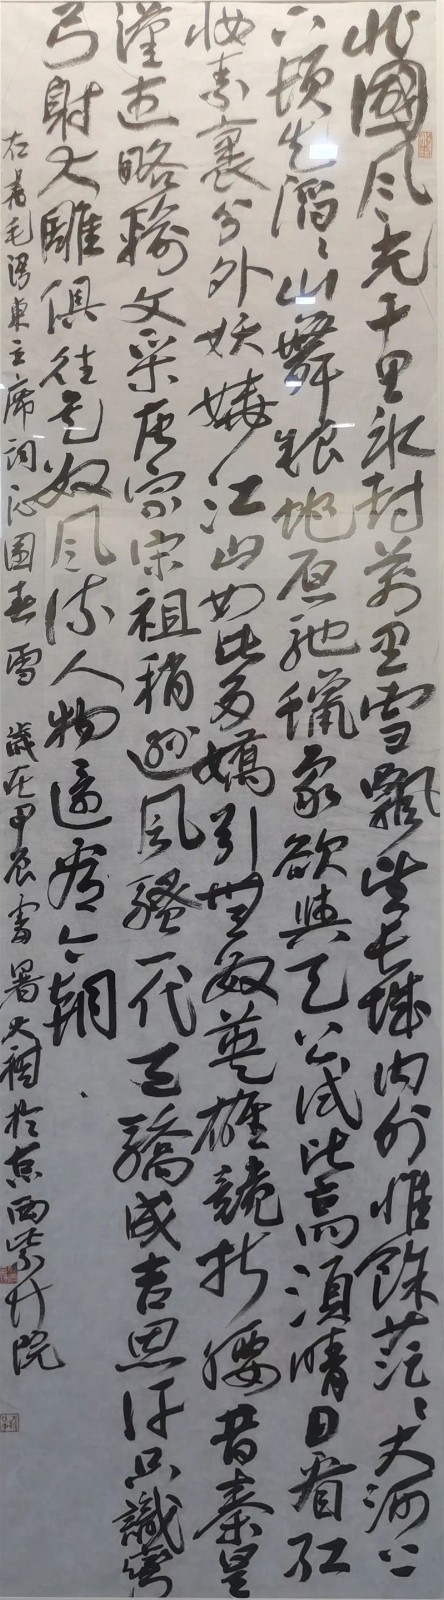 北國风光千里冰封萬里雪飄望长城内外惟餘茫〻大河上
下頓失滔〻山舞銀蛇原馳蠟象欲與天公試比高須晴日看紅
妝素裹分外妖嬈江山如此多嬌引無數英雄競折腰昔秦皇
漢武略輸文采唐宗宋祖稍遜风騷一代天驕成吉思汗只識彎
弓射大雕俱往矣數风流人物還看今朝
右書毛澤東主席詞沁園春雪 歲在甲辰處暑大於京西紫竹院